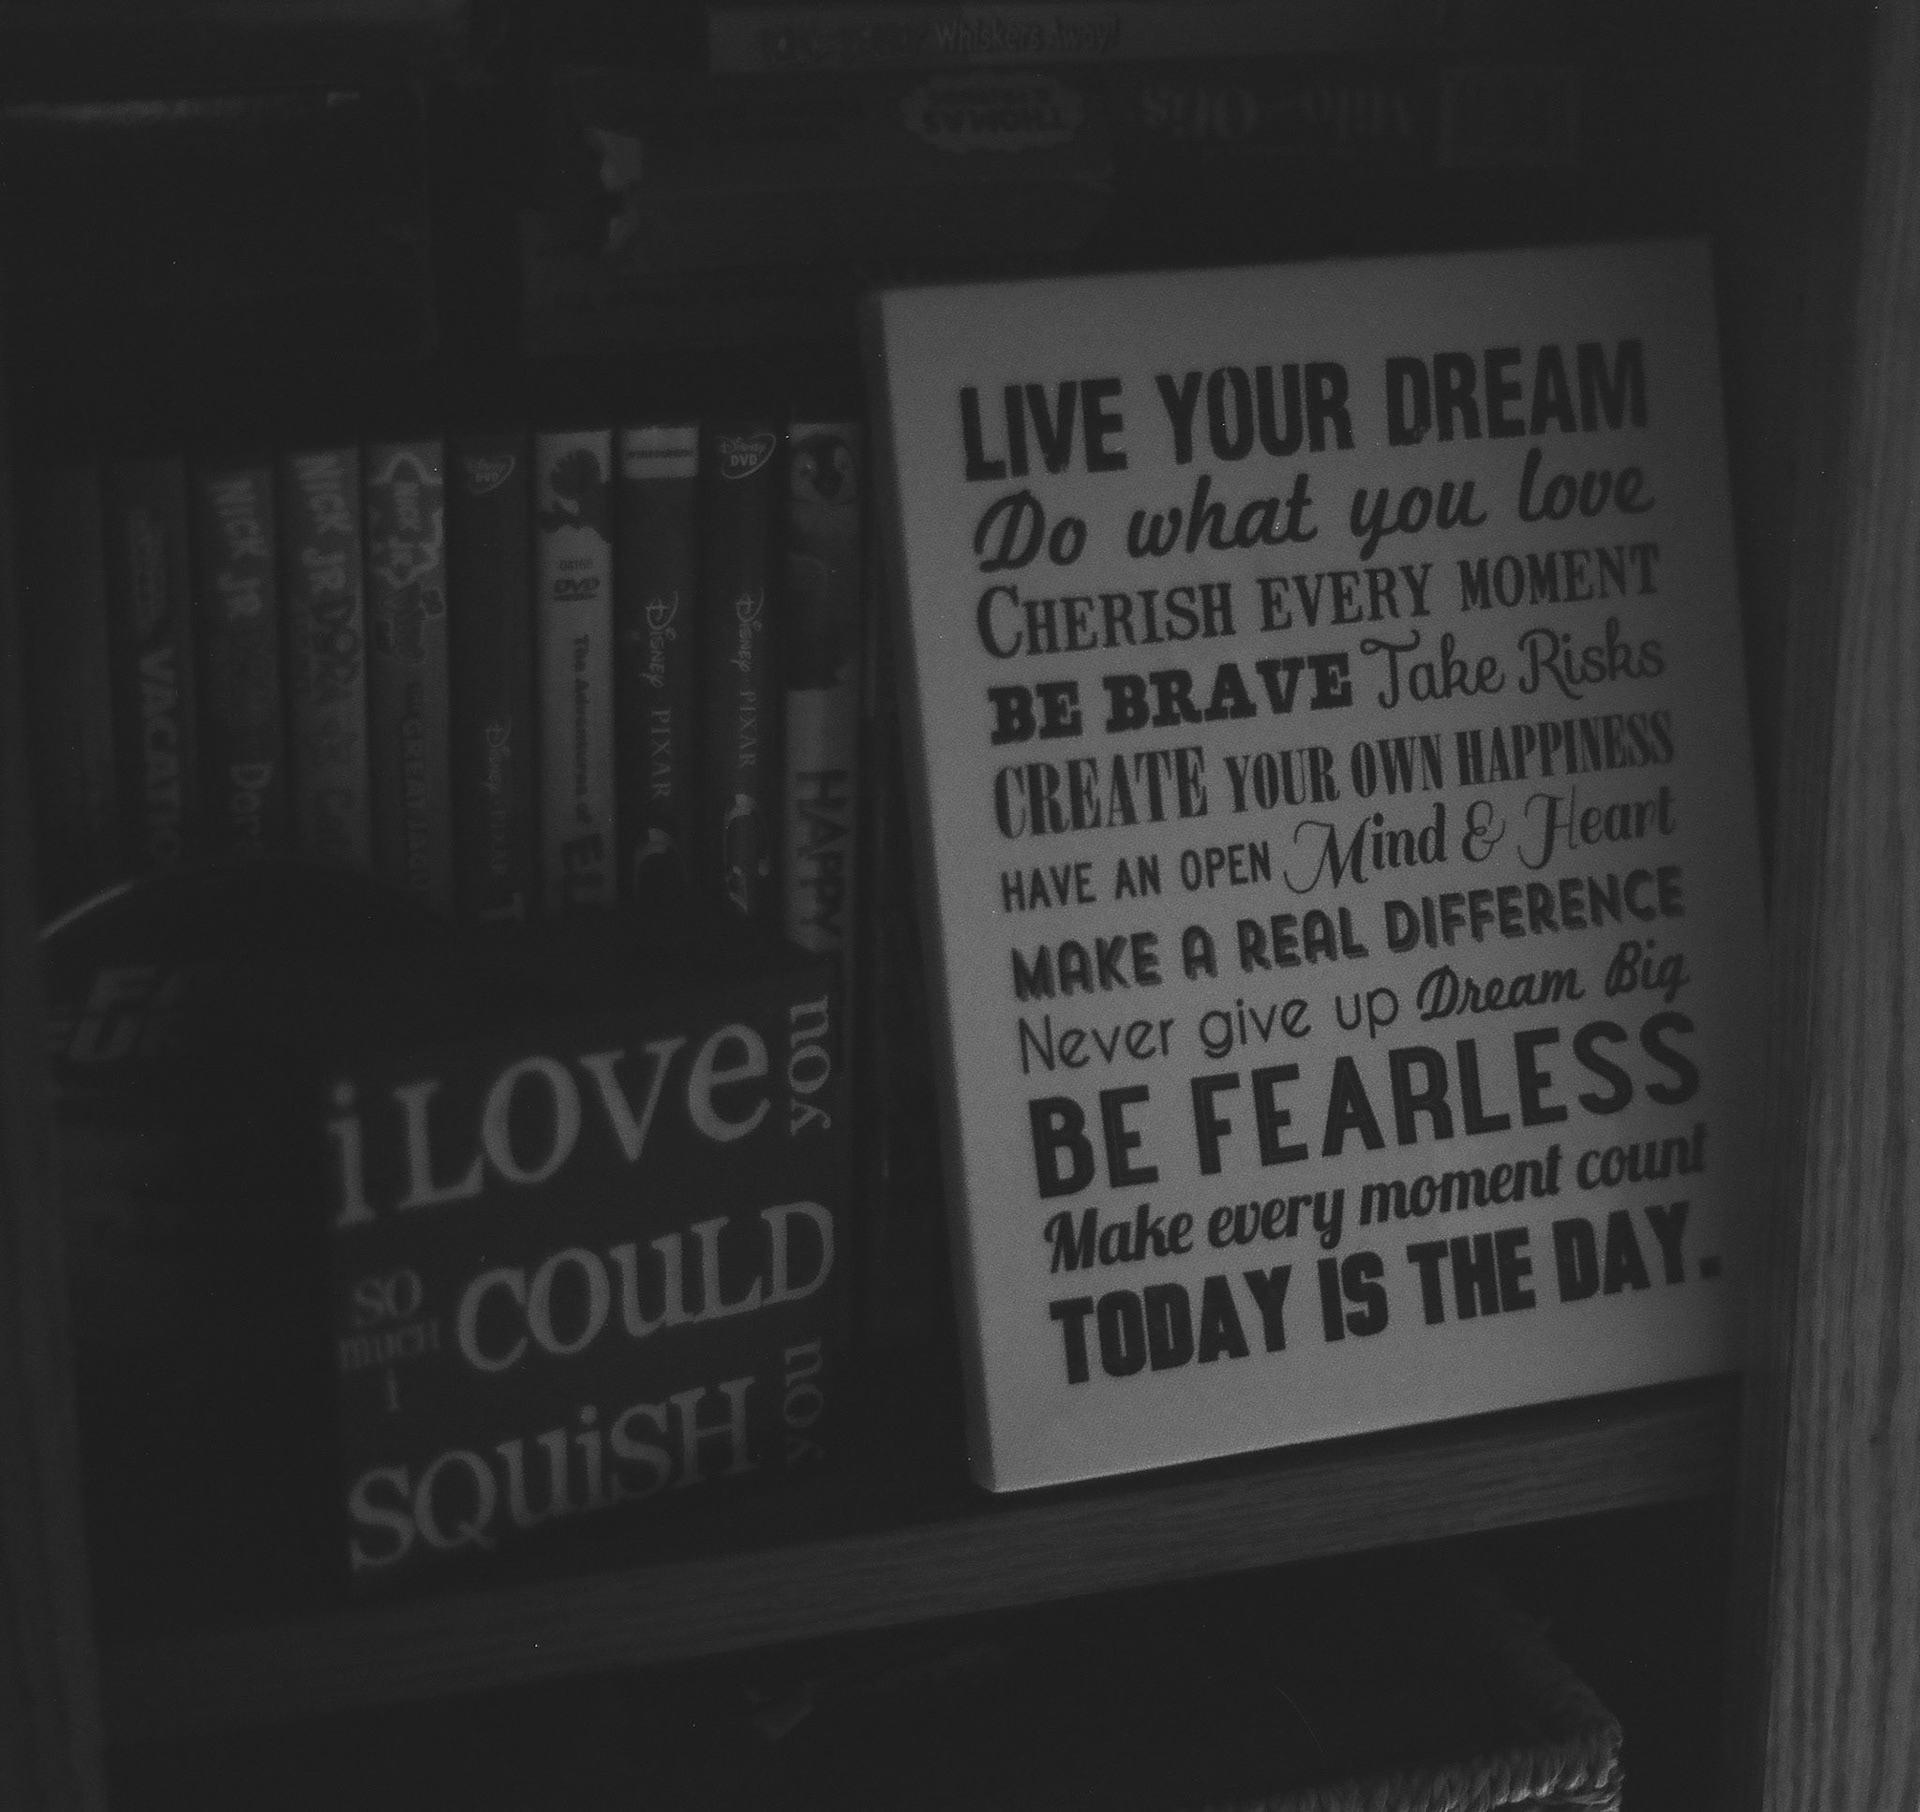 Whiskers Away!
THOMAS
Milo and Otis
VACATIO
NICK JR
Dor
NICK JR DORA
NICK JR
GREAT
Disney DVD
Disney PIXAR
DVD
The Adventures of
Disney PIXAR
Disney DVD
Disney PIXAR
HAPPY
i LOVE you
SO MUCH I COULD
SQUiSH you
LIVE YOUR DREAM
Do what you love
CHERISH EVERY MOMENT
BE BRAVE Take Risks
CREATE YOUR OWN HAPPINESS
HAVE AN OPEN Mind & Heart
MAKE A REAL DIFFERENCE
Never give up Dream Big
BE FEARLESS
Make every moment count
TODAY IS THE DAY.